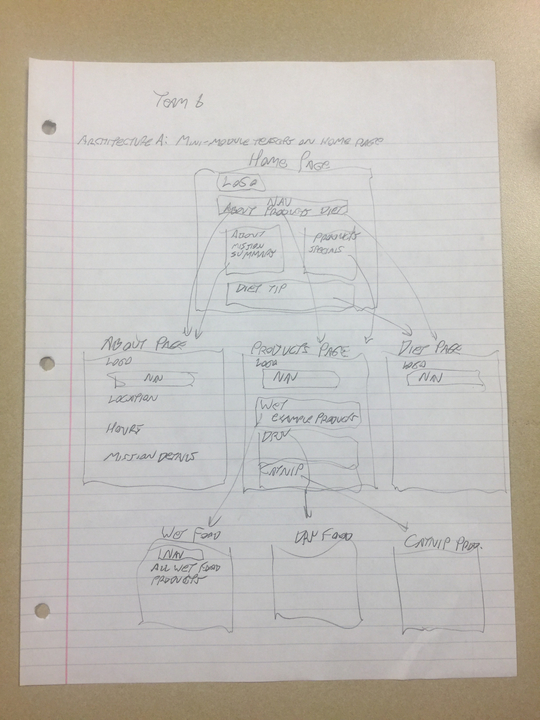 Team 6
ARCHITECTURE A: MINI-MODULE TEASERS ON HOME PAGE
HOME PAGE
LOGO
NAV
ABOUT PRODUCTS DIET
ABOUT
MISSION
SUMMARY
PRODUCTS
SPECIALS
DIET TIP
ABOUT PAGE
LOGO
NAV
LOCATION
HOURS
MISSION DETAILS
PRODUCTS PAGE
LOGO
NAV
WET
EXAMPLE PRODUCTS
DRY
CATNIP
DIET PAGE
LOGO
NAV
WET FOOD
NAV
ALL WET FOOD
PRODUCTS
DRY FOOD
CATNIP PROD.